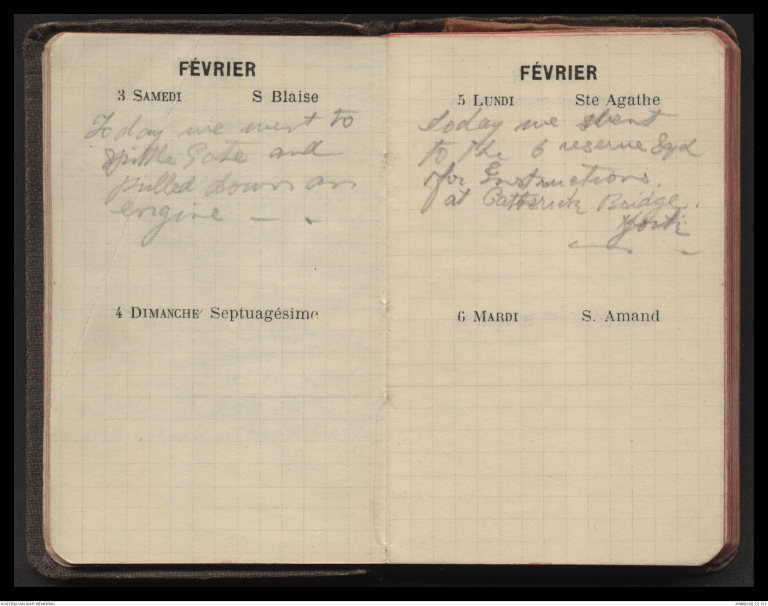 FÉVRIER
3 SAMEDI S Blaise
Today we went to
Spittle Gate and
pulled down an
engine — -
4 DIMANCHE Septuagésime
FÉVRIER
5 LUNDI Ste Agathe
Today we went
to the 6 reserve Sqd
for Instructions.
at Catterick Bridge.
York
6 MARDI S. Amand
AUSTRALIAN WAR MEMORIAL